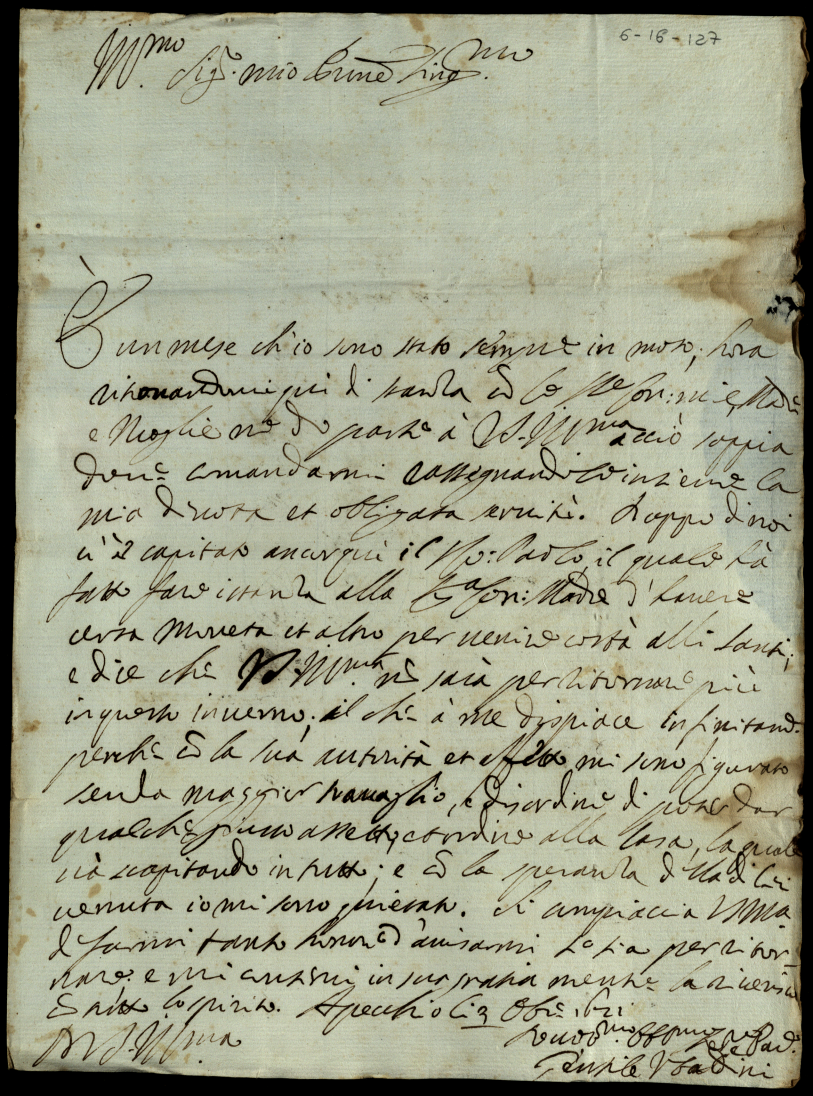 6-16-127
Ill.mo Sig.r mio Sing.mo
È un mese ch'io sono stato sempre in moto; hora
ritrovandomi qui di stanza le mie, Madre
e Moglie ne do parte à V.S. Ill.ma acciò sappia
dove comandarmi rassegnandole insieme la
mia divota et obligata servitù. Doppo di noi
ci è capitato ancor qui il Paolo, il quale hà
fatto fare istanza alla Madre d'havere
certa moneta et altro per venire costà alli Santi;
e dice che V.S. Ill.ma nõ sarà per ritornare più
in questo inverno; il che à me dispiace infinitam.
perche cõ la sua autorità et mi sono figurato
senza maggior travaglio, e disordine di poter dar
qualche assetto, et ordine alla Casa, la quale
và scapitando in tutto; e cõ la speranza d lla di Lei
venuta io mi sono quietato. Si compiaccia V.S. Ill.ma
di farmi tanto honore d'avisarmi se sia per ritor-
nare e mi conservi in sua gratia mentre la riverisco
cõ tutto lo spirito. Apecchio li Obre
Di V.S. Ill.ma
Gentile Ubaldini